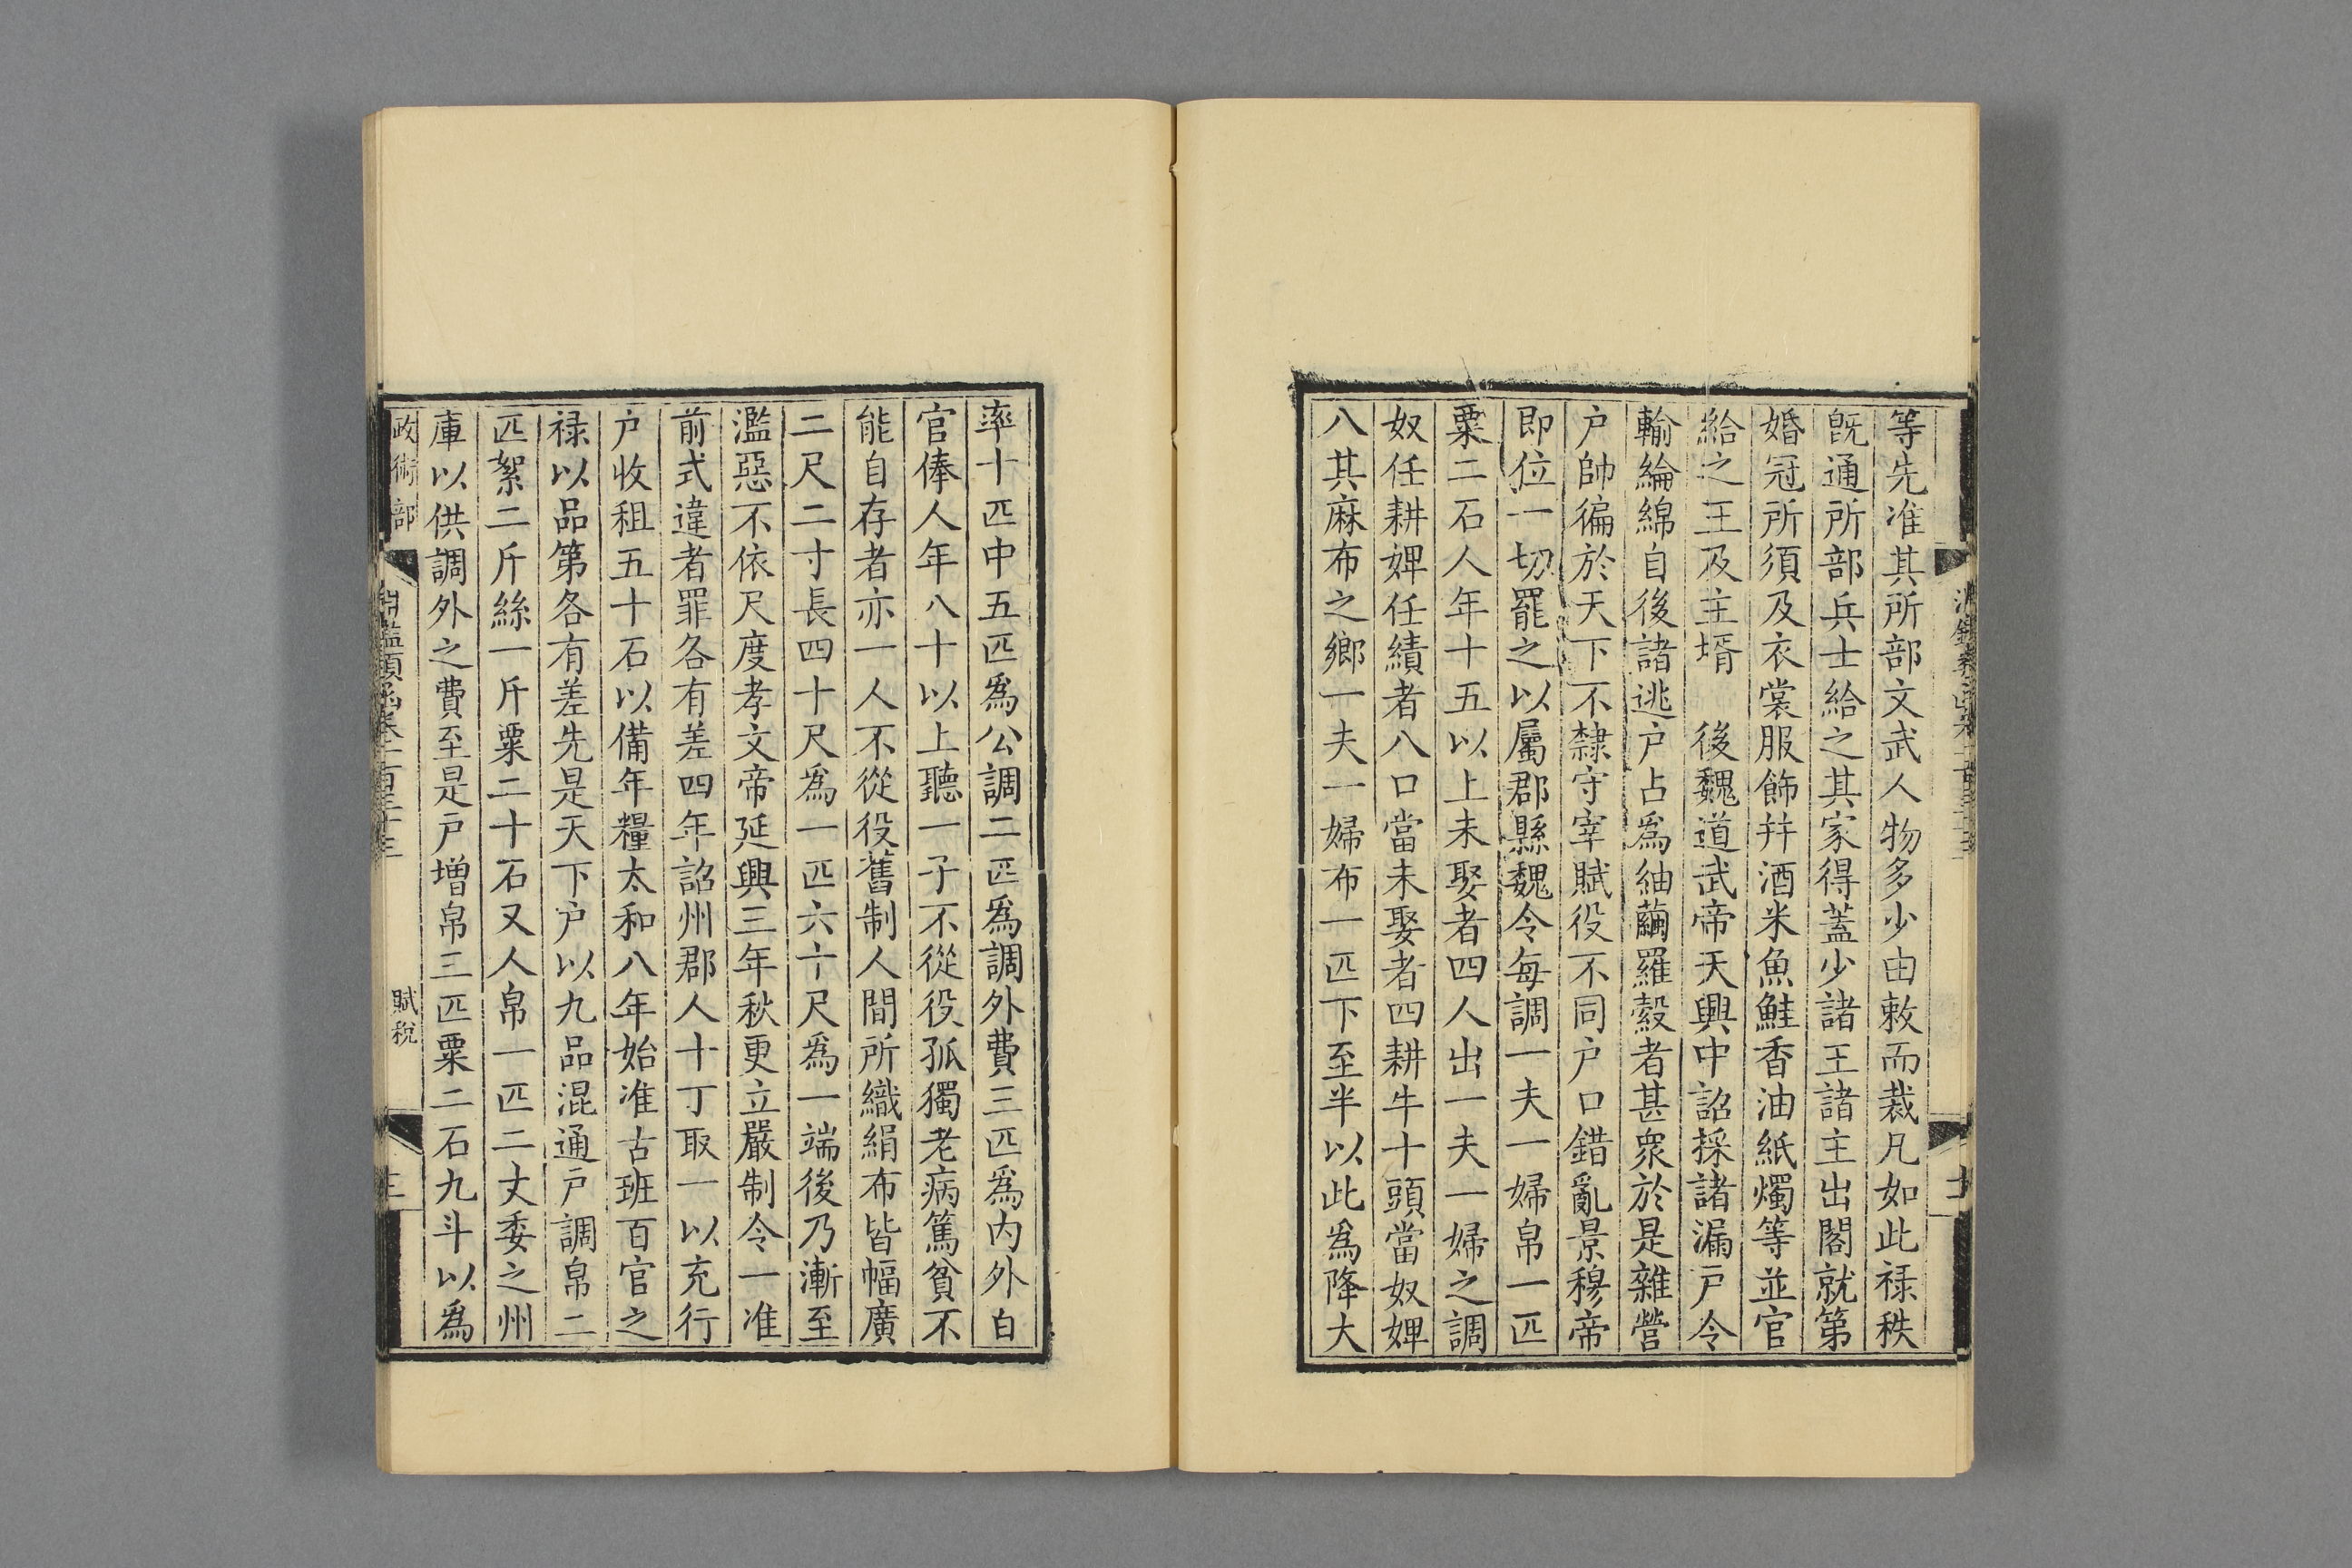 等先准其所部文武人物多少由敕而裁凡如此禄秩
旣通所部兵士給之其家得蓋少諸王諸主出閣就第
婚冠所須及衣裳服飾幷酒米魚鮭香油紙燭等並官
給之王及主壻　後魏道武帝天興中詔採諸漏戸令
輸綸綿自後諸逃戸占爲紬繭羅縠者甚衆於是雜營
戸帥徧於天下不隸守宰賦役不同戸口錯亂景穆帝
即位一切罷之以屬郡縣魏令每調一夫一婦帛一匹
粟二石人年十五以上未娶者四人出一夫一婦之調
奴任耕婢任績者八口當未娶者四耕牛十頭當奴婢
八其麻布之鄉一夫一婦布一匹下至半以此爲降大
率十匹中五匹爲公調二匹爲調外費三匹爲内外白
官俸人年八十以上聽一子不從役孤獨老病篤貧不
能自存者亦一人不從役舊制人間所織絹布皆幅廣
二尺二寸長四十尺爲一匹六十尺爲一端後乃漸至
濫惡不依尺度孝文帝延興三年秋更立嚴制令一准
前式違者罪各有差四年詔州郡人十丁取一以充行
戸收租五十石以備年糧太和八年始准古班百官之
禄以品第各有差先是天下戸以九品混通戸調帛二
匹絮二斤絲一斤粟二十石又人帛一匹二丈委之州
庫以供調外之費至是戸增帛三匹粟二石九斗以爲
政術部
淵鑑類函卷一百三十三
賦稅